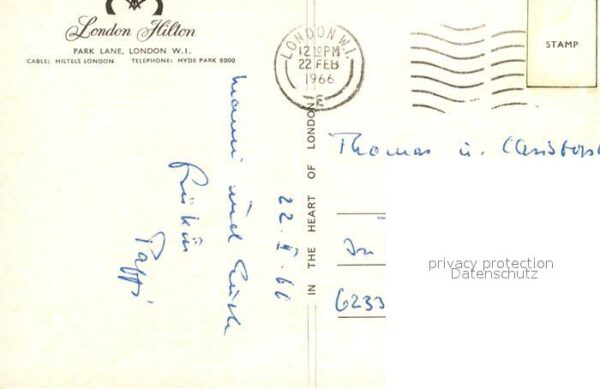 London Hilton
PARK LANE, LONDON W.I.
CABLE: HILTELS LONDON TELEPHONE: HYDE PARK 8000
LONDON W.1.
12 PM
22 FEB
1966
STAMP
IN THE HEART OF LONDON
22. II. 66
und
Pappi
Thomas u.
6233
privacy protection
Datenschutz